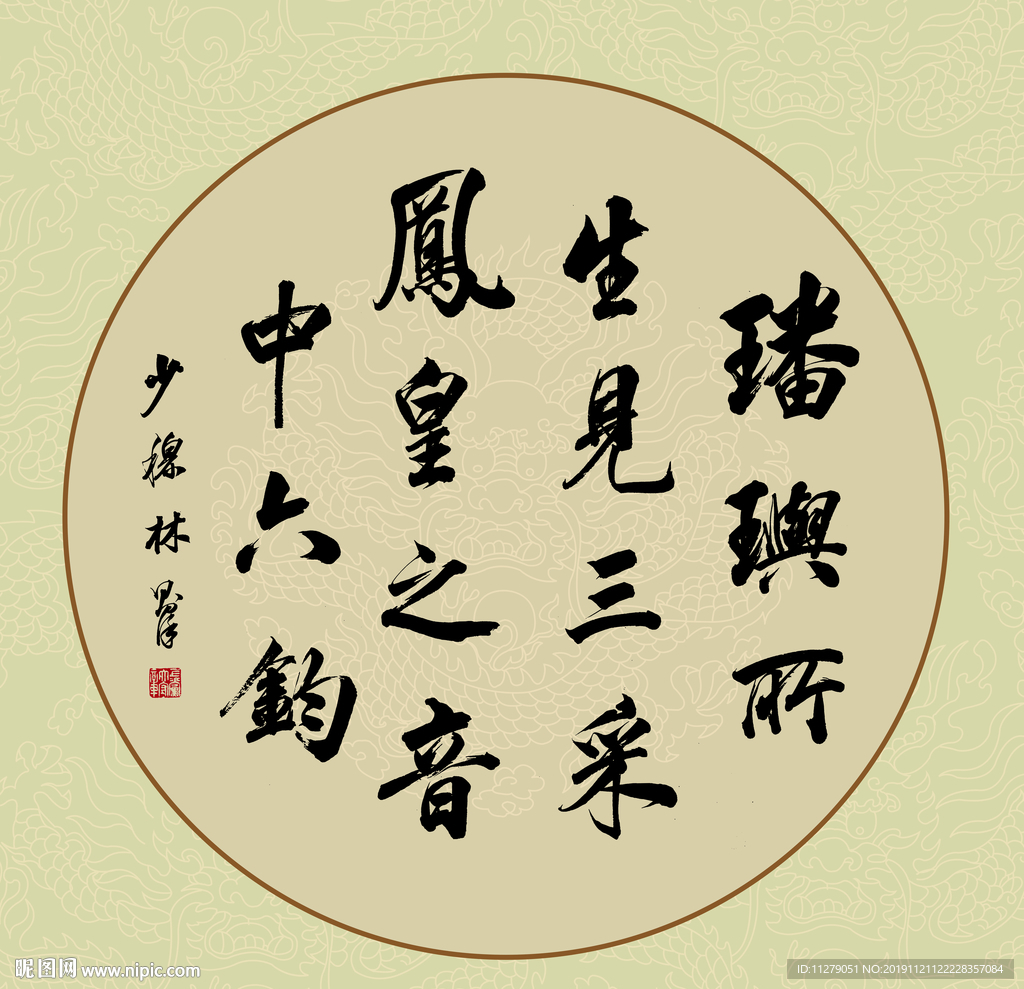 璠璵所
生見三采
鳳皇之音
中六鈞
少穆林
昵图网 www.nipic.com
ID:11279051 NO:20191121122228357084